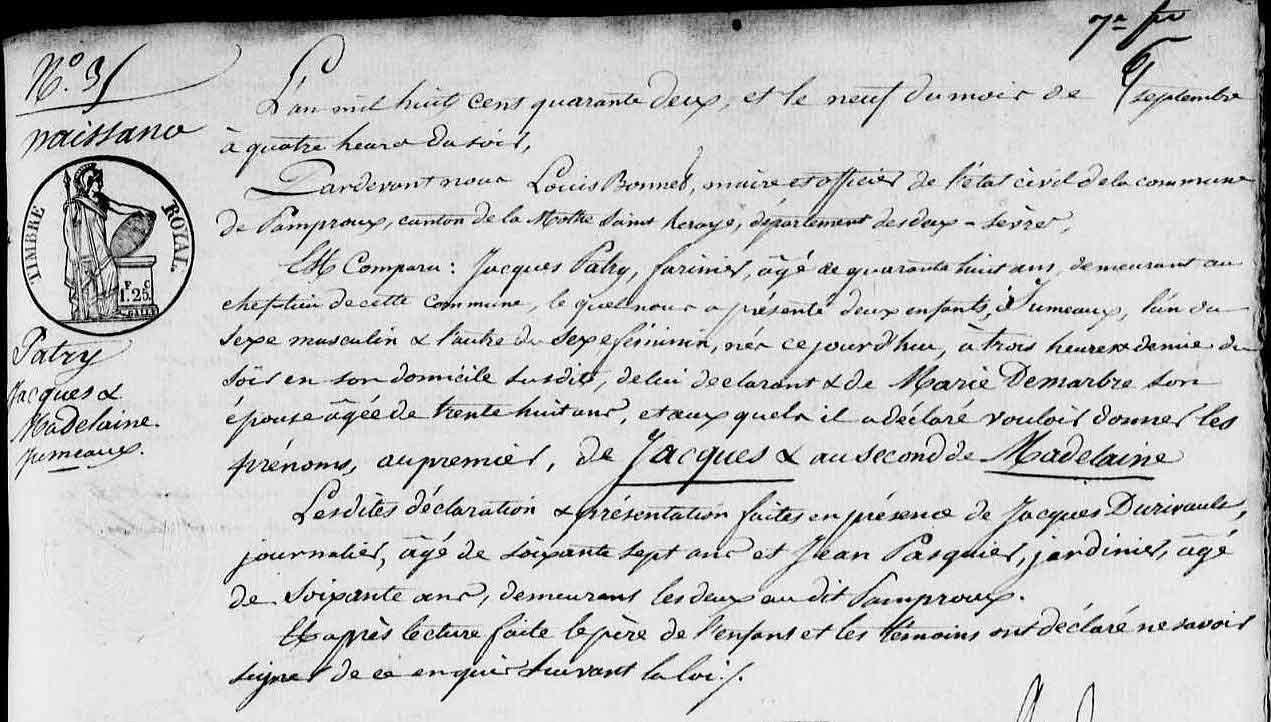 7e
N.o 3
naissance
TIMBRE ROYAL
F C
1.25
Patry
Jacques &
Madelaine.
Jumeaux.
L'an mil huit cens quarante deux, et le neuf du mois de septembre
à quatre heures du soir,
Pardevant nous Louis Bonnet, maire et officier de l'état civil de la commune
de Pamproux, canton de la Mothe Saint heraye, département des deux-sèvres,
Est Comparu : Jacques Patry, farinier, âgé de quarante huit ans, demeurant au
chef lieu de cette commune, le quel nous a présenté deux enfants, Jumeaux, l'un du
sexe masculin & l'autre du sexe féminin, nés ce jourd'hui, à trois heures & demie du
soir en son domicile susdit, de lui déclarant & de Marie Demarbre son
épouse âgée de trente huit ans, et aux quels il a déclaré vouloir donner les
prénoms, au premier, de Jacques & au second de Madelaine
Lesdites déclaration & présentation faites en présence de Jacques Durivault,
journalier, âgé de soixante sept ans et Jean Pasquier, jardinier, âgé
de soixante ans, demeurant les deux au dit Pamproux.
Et après lecture faite le père de l'enfant et les témoins ont déclaré ne savoir
signer de ce enquis suivant la loi ./.